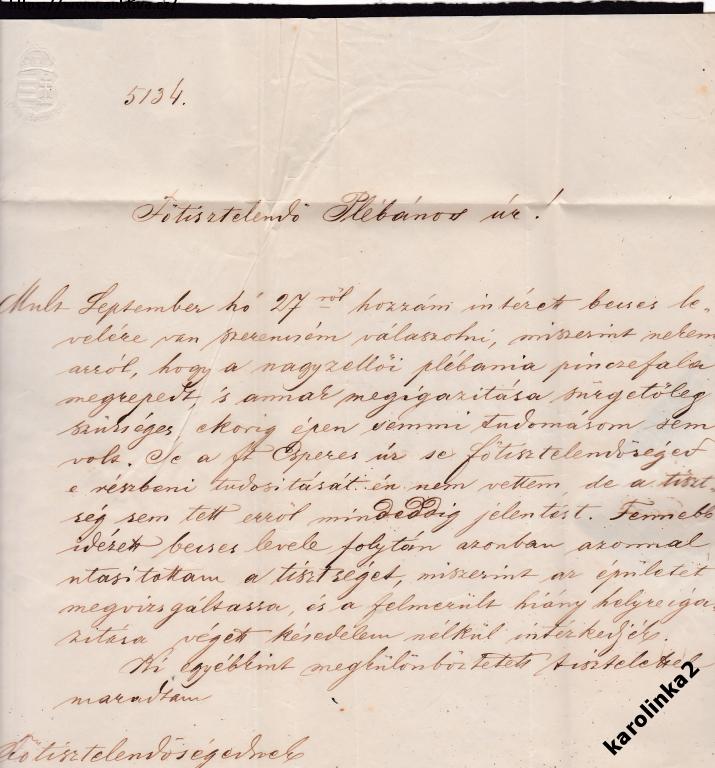 5134.
Főtisztelendő Plébános úr!
Mult September hó 27 ről hozzám intézett becses le„
velére van szerencsém válaszolni, miszerint nekem
arról, hogy a nagyzellői plébánia pinczefala
megrepedt, is annak megigazitása sürgetőleg
szükséges ekorig épen semmi tudomásom sem
volt. Se a ft Esperes úr se főtisztelendőséged
e részbeni tudositását én nem vettem, de a tiszt„
ség sem tett erről mindeddig jelentést. Fennebb
idézett becses levele folytán azonban azonnal
utasitottam a tisztséget, miszerint az épületet
megvizsgáltassa, és a felmerült hiány helyreiga„
zitása végett késedelem nélkül intézkedjék.
Ki egyébbrint megkülönböztetett tisztelettel
maradtam
Főtisztelendőségednek
karolinka2